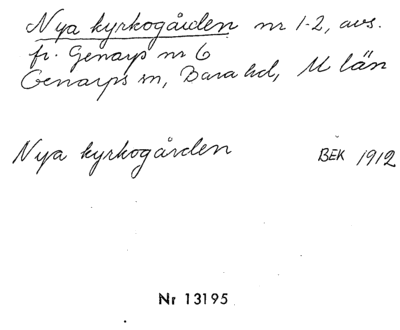 Nya kyrkogården nr 1-2, avs.
fr. Genarp nr 6
Genarps sn, Bara hd, M län
Nya kyrkogården BEK 1912
Nr 13195